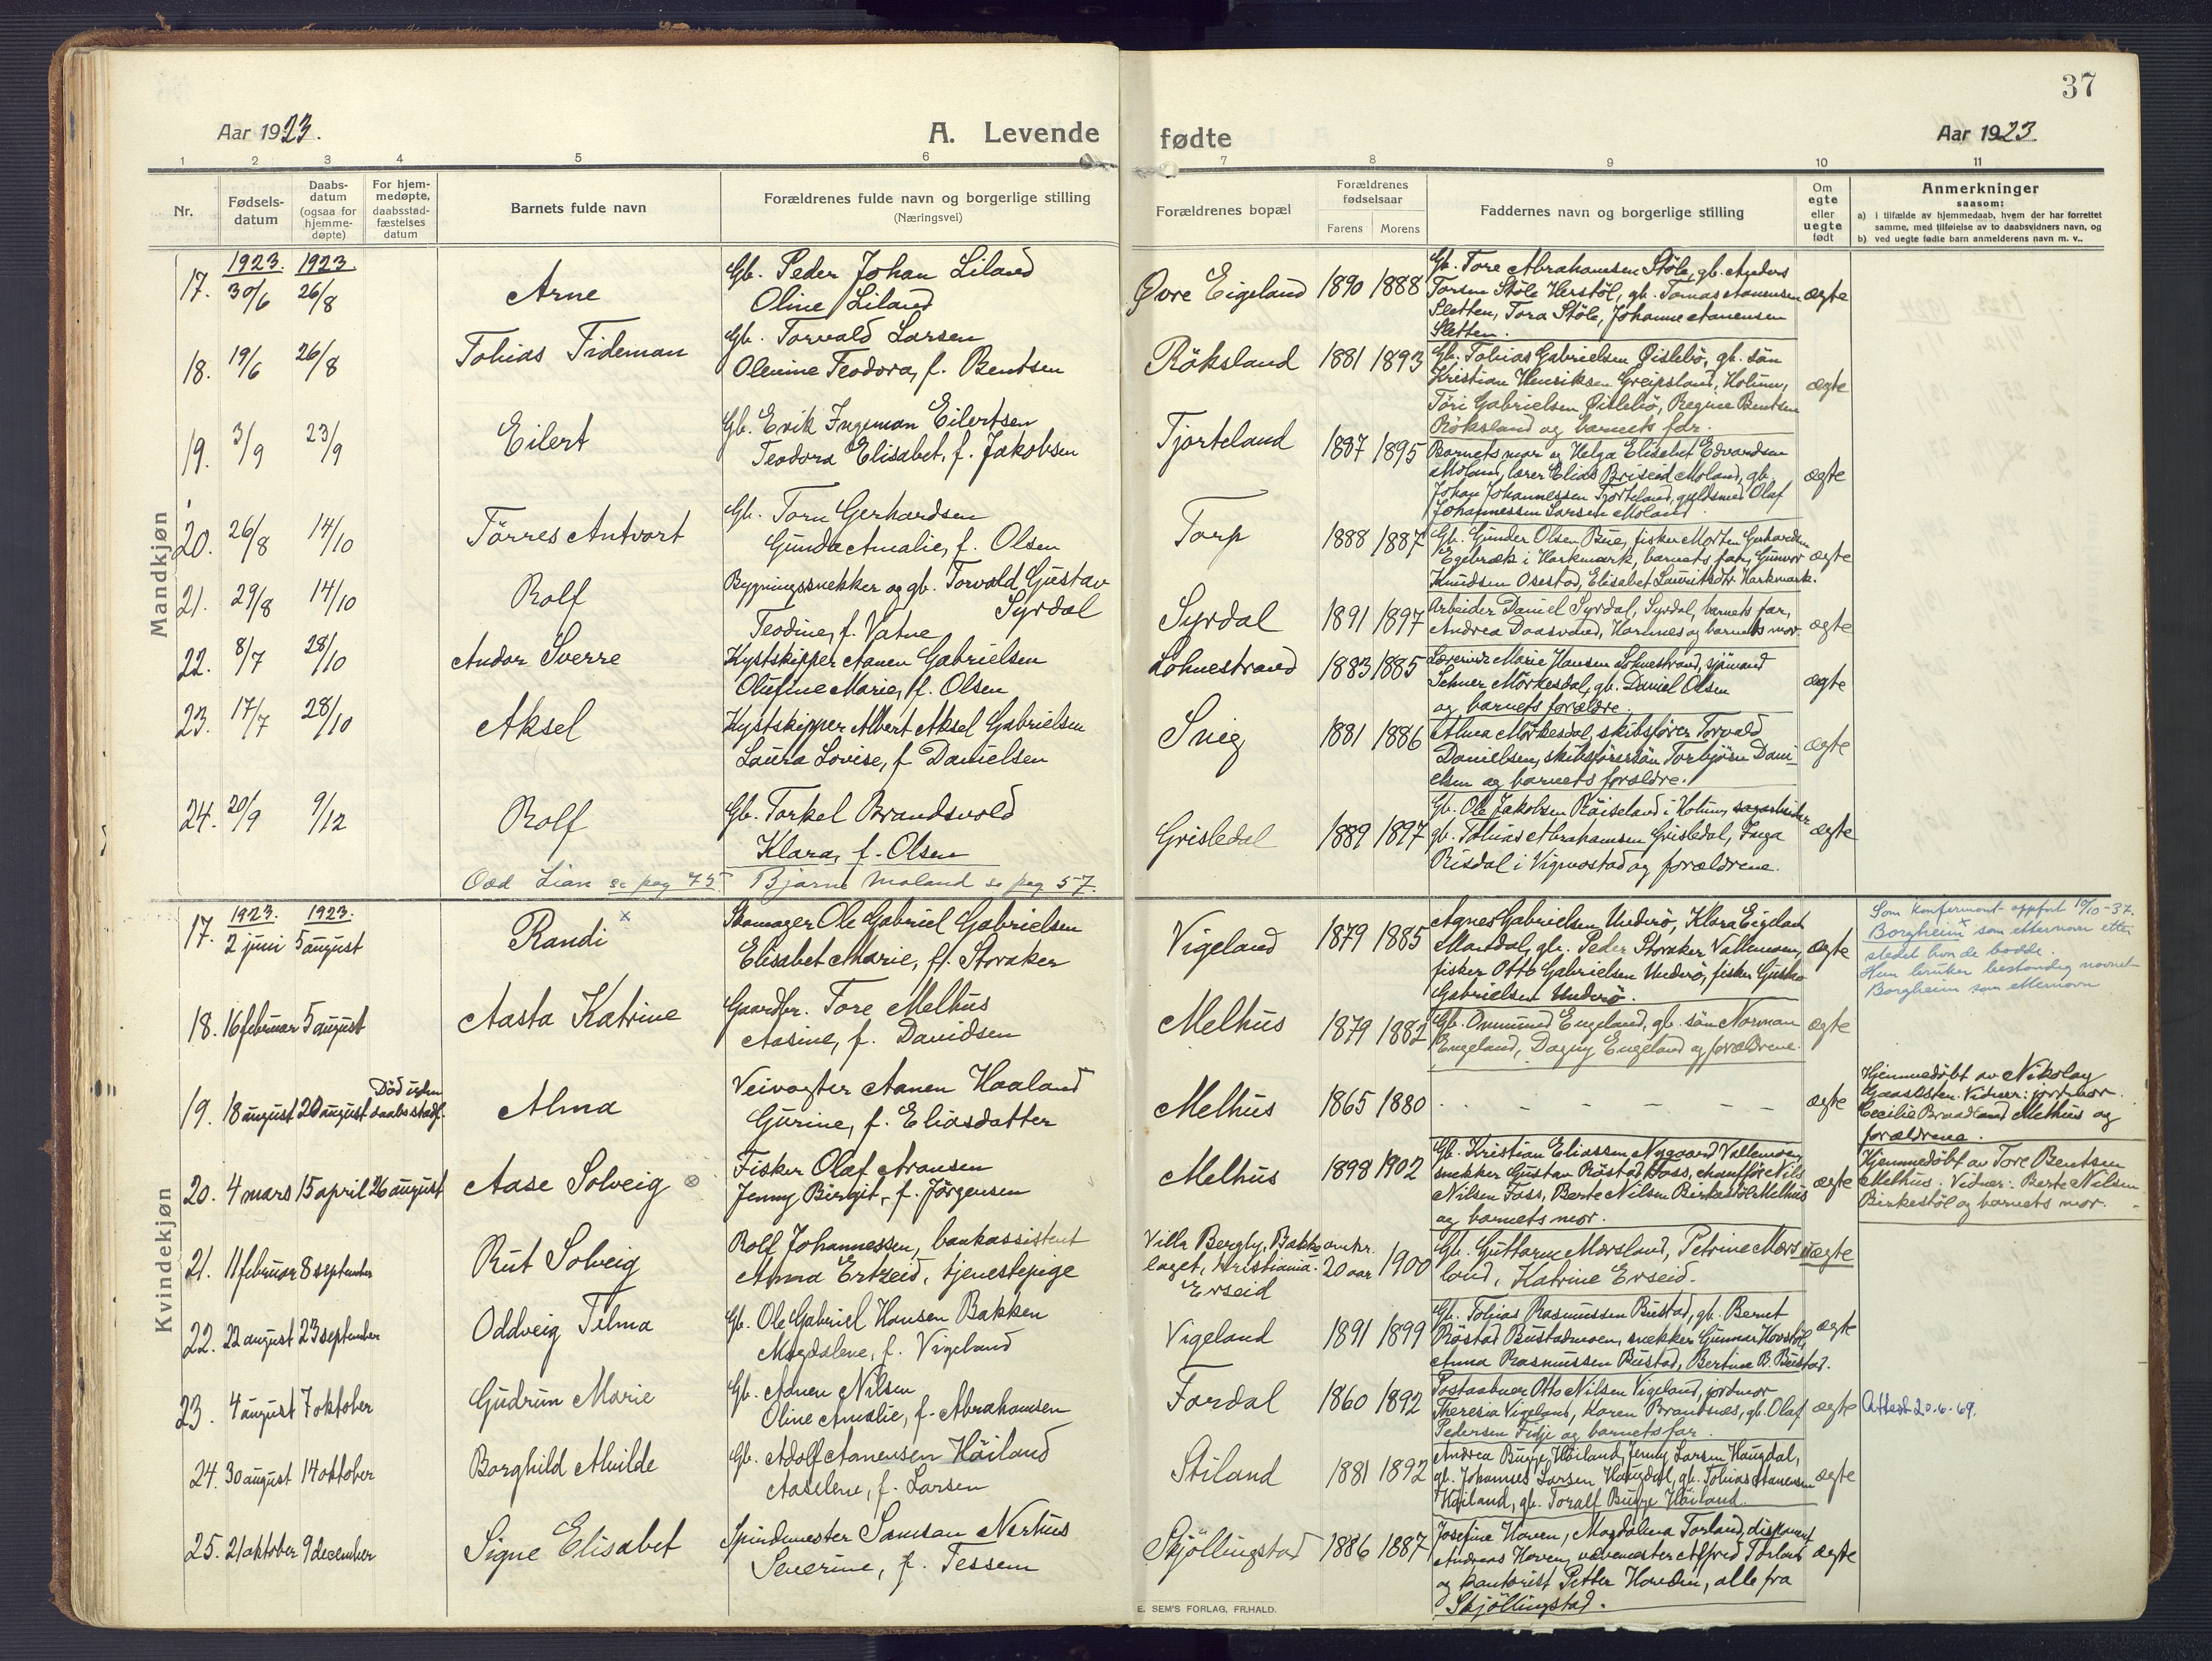 37
Aar 1923.
A. Levende fødte
Aar 1923
1 2 3 4 5 6 7 8 9 10 11
Nr.
Fødsels-
datum
Daabs-
datum
(ogsaa for
hjemme-
døpte)
For hjem-
medøpte,
daabsstad-
fæstelses
datum
Barnets fulde navn
Forældrenes fulde navn og borgerlige stilling
(Næringsvei)
Forældrenes bopæl
Forældrenes
fødselsaar
Farens Morens
Faddernes navn og borgerlige stilling
Om
egte
eller
uegte
født
Anmerkninger
saasom:
a) i tilfælde av hjemmedaab, hvem der har forrettet
samme, med tilføielse av to daabsvidners navn, og
b) ved uegte fødte barn anmelderens navn m. v..
Mandkjøn
1923. 1923.
17. 30/6 26/8 Arne
Gb. Peder Johan Liland
Oline Liland
Øvre Eigeland 1890 1888
Gb. Tore Abrahamsen Støle, gb. Anders
Torsen Støle Herstøl, gb. Tomas Aanensen
Sletten, Tora Støle, Johanne Aanensen
Sletten.
ægte
18. 19/6 26/8 Tobias Tideman
Gb. Torvald Larsen
Olenine Teodora, f. Bentsen
Röksland 1881 1893
Gb. Tobias Gabrielsen Øislebö, gb. sön
Kristian Henriksen Greipsland, Holum,
Töri Gabrielsen Øislebö, Regine Bentsen
Röksland og barnets far.
ægte
19. 3/9 23/9 Eilert
Gb. Erik Ingeman Eilertsen
Teodora Elisabet, f. Jakobsen
Tjorteland 1887 1895
Barnets mor og Helga Elisabet Edvardsen
Moland, lærer Elias Briseid Moland, gb.
Johan Johannessen Tjorteland, guldsmed Olaf
Johannessen Larsen Moland
ægte
20. 26/8 14/10 Törres Antvort
Gb. Torn Gerhardsen
Gunda Amalie, f. Olsen
Torp 1888 1887
Gb. Gunder Olsen Bue, fisker Morten Gerhardsen
Egebræk i Harkmark, barnets far, Gunvor
Knudsen Osestad, Elisabet Lauritsdtr. Harkmark.
ægte
21. 29/8 14/10 Rolf
Bygningssnekker og gb. Torvald Gustav
Syrdal
Teodine, f. Vatne
Syrdal 1891 1897
Arbeider Daniel Syrdal, Syrdal, barnets far,
Andrea Daasvand, Homnes og barnets mor.
ægte
22. 8/7 28/10 Andor Sverre
Kystskipper Aanen Gabrielsen
Olufine Marie, f. Olsen
Lohnestrand 1883 1885
Lærerinde Marie Hansen Lohnestrand, sjömand
Selmer Mörkesdal, gb. Daniel Olsen
og barnets forældre.
ægte
23. 17/7 28/10 Aksel
Kystskipper Albert Aksel Gabrielsen
Laura Lovise, f. Danielsen
Snig 1881 1886
Alma Mörkesdal, skibsförer Torvald
Danielsen, skibsförersön Torbjörn Dani-
elsen og barnets forældre.
ægte
24. 20/9 9/12 Rolf
Gb. Torkel Brandsvold
Klara, f. Olsen
Grisledal 1889 1897
Gb. Ole Jakobsen Röiseland i Holum, sagarbeider
gb. Tobias Abrahamsen Grisledal, Inga
Risdal i Vigmostad og forældrene.
ægte
Odd Lian se pag 75. Bjarne Moland se pag 57.
Kvindekjøn
1923. 1923.
17. 2 juni 5 august Randi x
Skomager Ole Gabriel Gabrielsen
Elisabet Marie, f. Storaker
Vigeland 1879 1885
Agnes Gabrielsen Underö, Klara Eigeland
Mandal, gb. Peder Storaker Vallemoen,
fisker Otto Gabrielsen Underö, fisker Gustav
Gabrielsen Underö.
ægte
Som konfirmant oppført 10/10-37.
Borgheim x som etternavn etter
stedet hvor de bodde.
Hun bruker bestandig navnet
Borgheim som etternavn
18. 16 februar 5 august Aasta Katrine
Gaardbr. Tore Melhus
Aasine, f. Davidsen
Melhus 1879 1882
Gb. Ommund Engeland, gb. sön Norman
Engeland, Dagny Engeland og forældrene.
ægte
19. 18 august 20 august
Död uden
daabsstadf.
Alma
Veivogter Aanen Haaland
Gurine, f. Eliasdatter
Melhus 1865 1880
- - - - - - -
ægte
Hjemmedöbt av Nikolay
Gaaslsten. Vidner: jordmor
Cecilie Braadland Melhus og
forældrene.
20. 4 mars 15 april 26 august Aase Solveig
Fisker Olaf Aransen
Jenny Birgit, f. Jörgensen
Melhus 1898 1902
Gb. Kristian Eliassen Nygaard Vallemoen,
snekker Gustav Röstad Foss, chaufför Nils
Nilsen Foss, Berte Nilsen Birkestöl Melhus
og barnets mor.
ægte
Hjemmedöbt av Tore Bentsen
Melhus. Vidner: Berte Nilsen
Birkestöl og barnets mor.
21. 11 februar 8 september Rut Solveig
Rolf Johannessen, bankassistent
Anna Ertzeid, tjenestepige
Villa Bergly, Bakke
laget, Kristiania.
Erseid
omkr.
20 aar 1900
Gb. Guttorm Mørsland, Petrine Mørs-
land, Katrine Erseid.
uægte
22. 22 august 23 september Oddveig Tilma
Gb. Ole Gabriel Hansen Bakken
Magdalene, f. Vigeland
Vigeland 1891 1899
Gb. Tobias Rasmussen Bustad, gb. Bernt
Röstad Bustadmoen, snekker Gunnar Hovstöl,
Anna Rasmussen Bustad, Bertine B. Bustad.
ægte
23. 4 august 7 oktober Gudrun Marie
Gb. Aanen Nilsen
Oline Amalie, f. Abrahamsen
Fordal 1860 1892
Postaabner Otto Nilsen Vigeland, jordmor
Theresia Vigeland, Karen Brandsnes, gb. Olaf
Pedersen Fidje og barnets far.
ægte
Attest 20.6.69.
24. 30 august 14 oktober Borghild Alvilde
Gb. Adolf Aanensen Höiland
Aaselene, f. Larsen
Stiland 1881 1892
Andrea Bugge Höiland, Jenny Larsen Haugdal,
gb. Johannes Larsen Haugdal, gb. Tobias Aanensen
Höiland, gb. Toralf Bugge Höiland.
ægte
25. 21 oktober 9 december Signe Elisabet
Spindemester Samson Nerhus
Severine, f. Tessem
Skjöllingstad 1886 1887
Josefine Hoven, Magdalena Torland, disponent
Andreas Hoven, vævemester Alfred Torland
og kontorist Petter Hovden, alle fra
Skjöllingstad.
ægte
E. SEM'S FORLAG, FR.HALD.